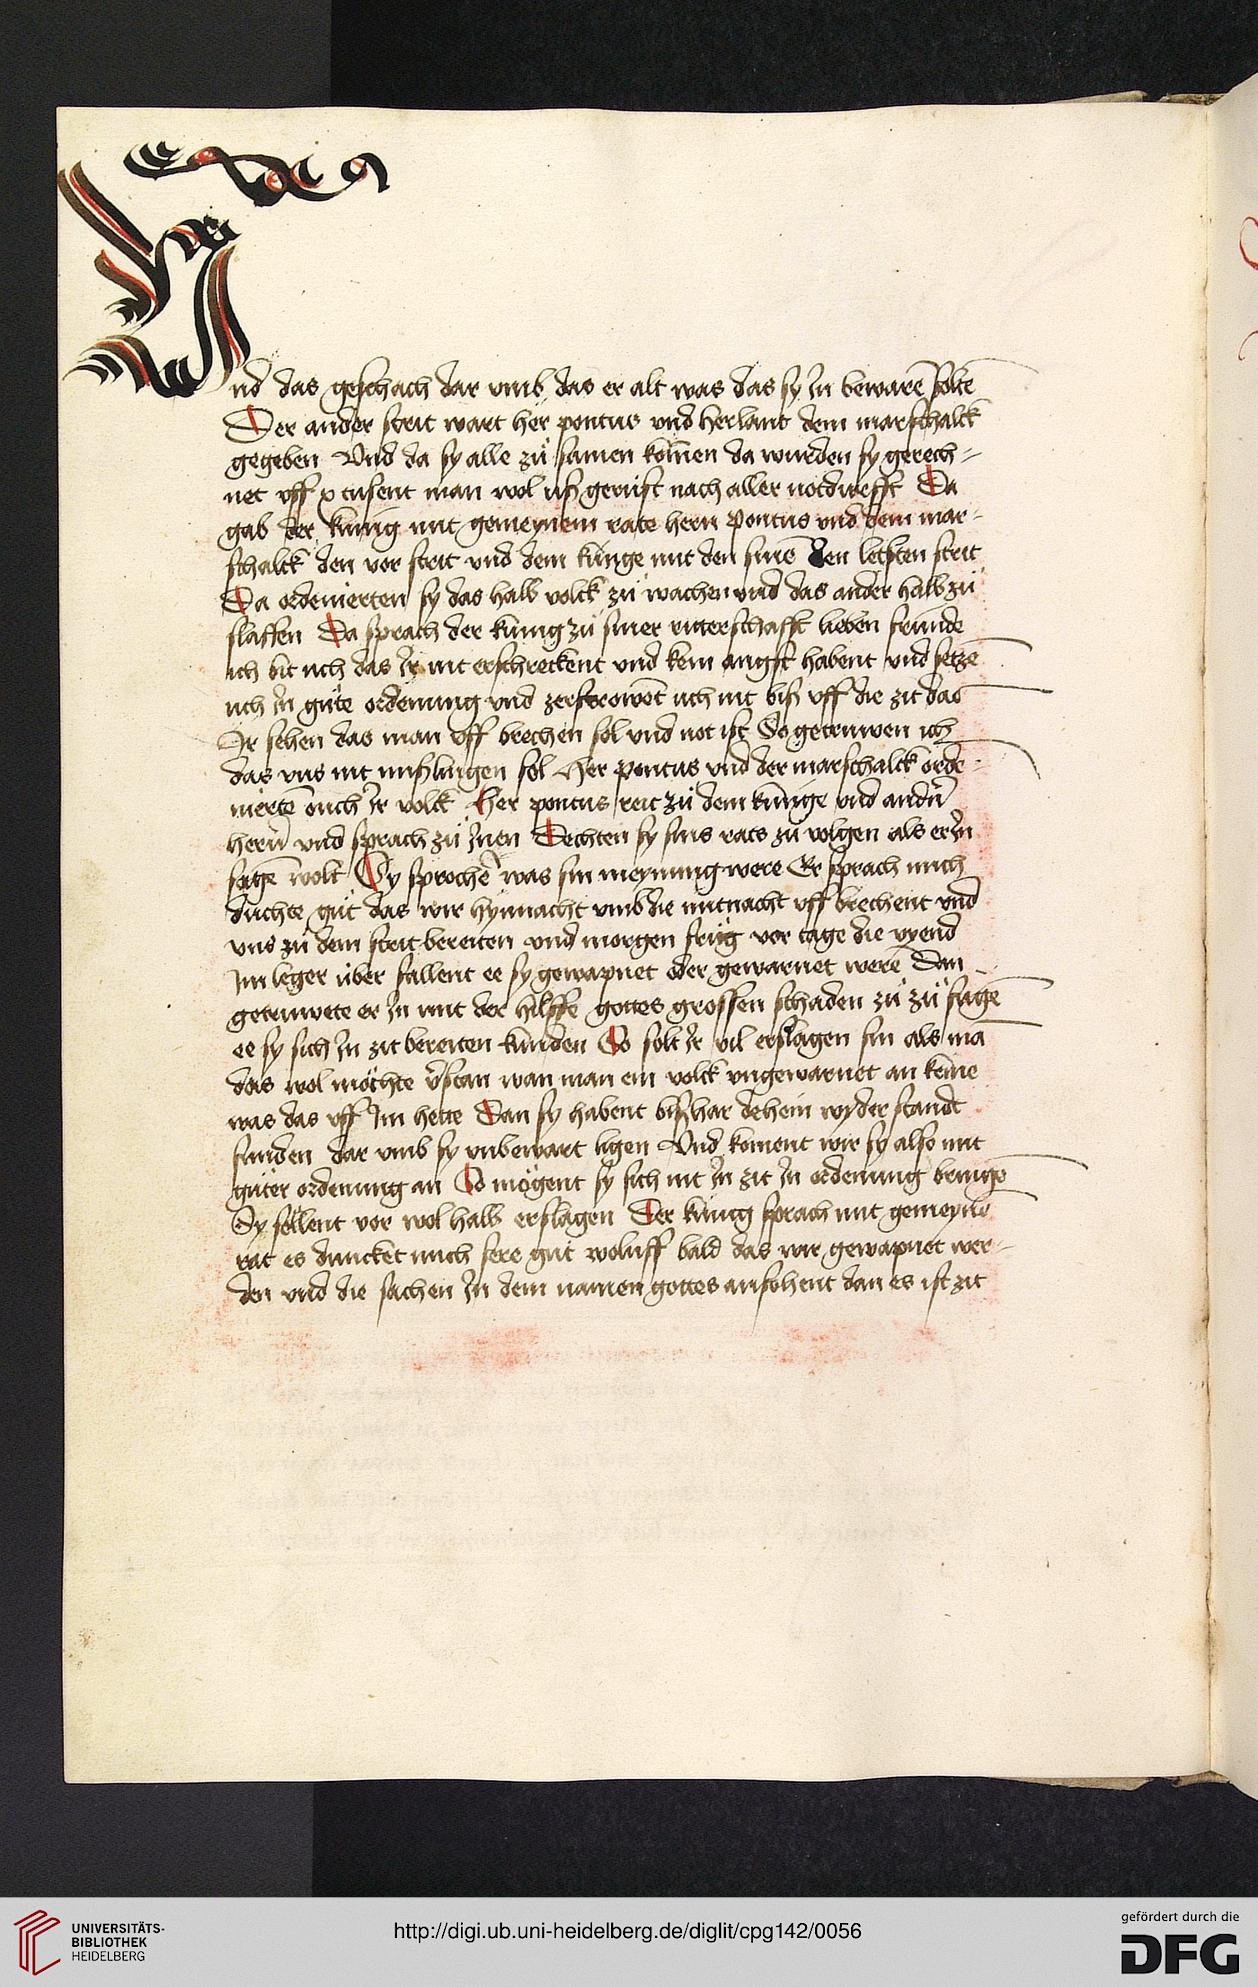 Vnd das geschach dar vmb das er alt was das sy In bewarē solte
Der ander strit wart her pontus vnd herlant dem marschalck
gegeben Vnd da sy alle zů samen komen da wurden sy gerech-
net vff x tusent man wol uß gerüst nach aller notdurfft Da
gab der kúnig mit gemeynem rate hern pontus vnd dem mar-
schalck den vor strit vnd dem kúnge mit den sinē den letsten strit
Da ordenierten sy das halb volck zů wachen vnd das ander halb zů
slaffen Da sprach der kúnig zů siner ritterschafft lieben frúnde
ich bit uch das Ir nit erschreckent vnd kein angst habent vnd setzē
uch In gůte ordenung vnd zerstrowēt uch nit biß vff die zit das
Ir sehen das man vff brechen sol vnd not ist So getruwen ich
das vns nit mißlingen sol Her pontus vnd der marschalck orde-
nierte ouch Ir volck Her pontus reit zů dem kúnige vnd andn̄
hern̄ vnd sprach zů Inen Dechten sy sins rats zů volgen als er In
sagē wolt Sy sprochē was sin meynung were Er sprach mich
duchte gůt das wir hynnacht vmb die mitnacht vff brechent vnd
vns zů dem strit bereiten vnd morgen frůg vor tage die vyend
Im leger úber fallent ee sy gewapnet oder gewarnet werē Dan
getruwete er In mit der hilffe gottes grossen schaden zů zů fúgē
ee sy sich In zit bereiten kúnden So solt Ir vil erslagen sin als mā
das wol möchte v̄stan wan man ein volck vngewarnet an keme
was das vff Im hette Dan sy habent bißhar dehein wyder standt
funden dar vmb sy vnbewart ligen Vnd koment wir sy also mit
gůter ordenung an So mögent sy sich nit In zit In ordenung bringē
Sy söllent vor wol halb erslagen Der kúnig sprach mit gemeynē
rat es duncket mich sere gůt woluff bald das wir gewapnet wer-
den vnd die sachen In dem namen gottes anfohent dan es ist zit
UNIVERSITÄTS-
BIBLIOTHEK
HEIDELBERG
http://digi.ub.uni-heidelberg.de/diglit/cpg142/0056
gefördert durch die
DFG